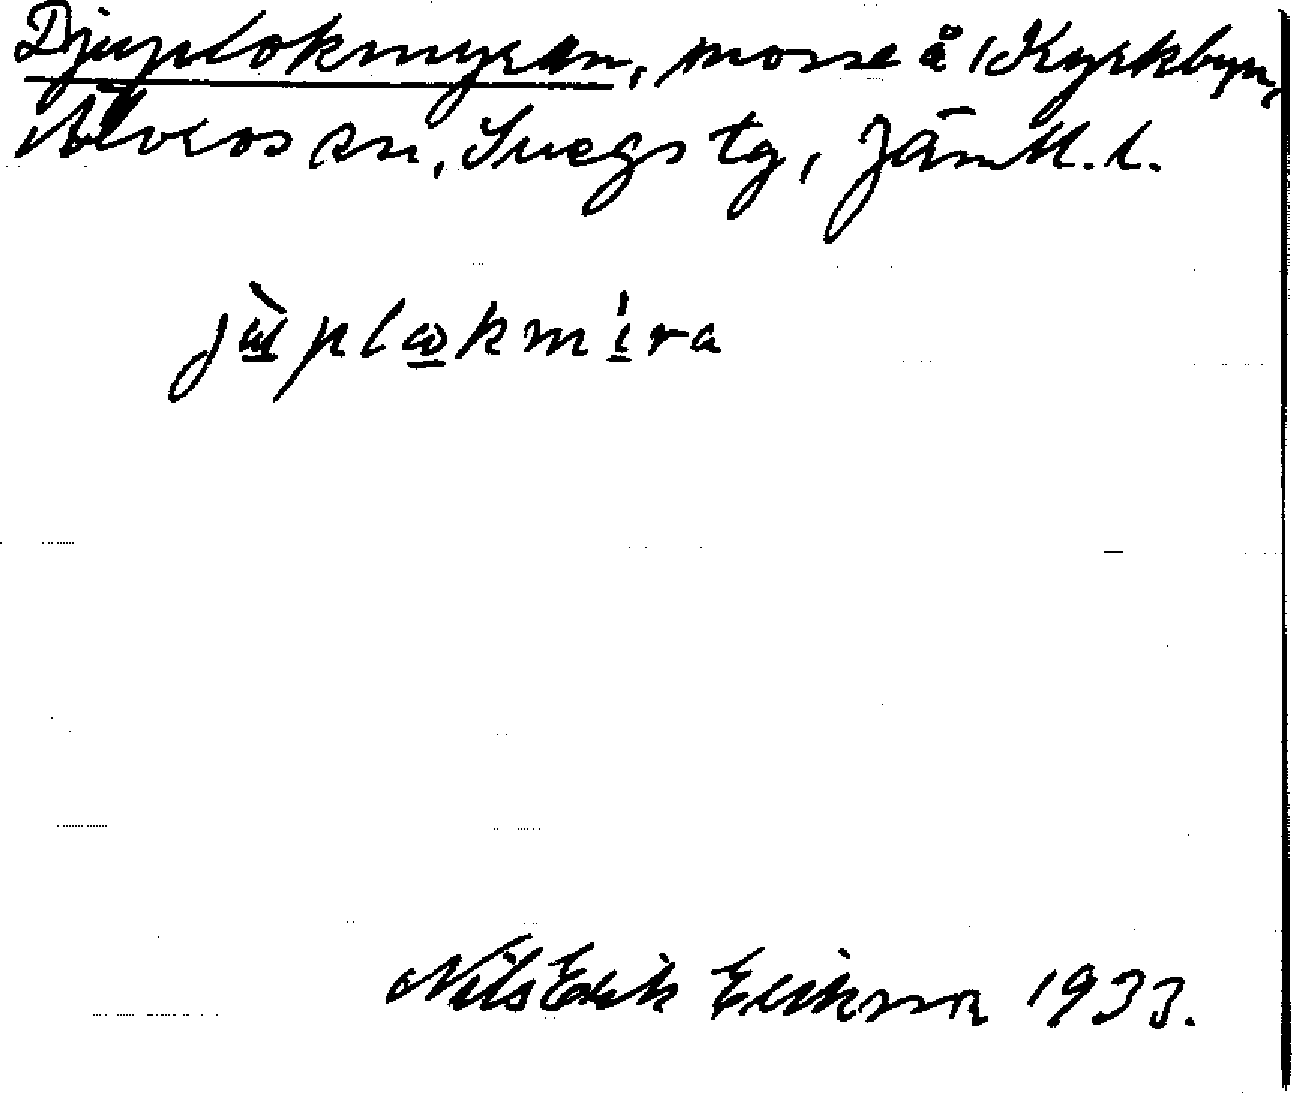 Djuplokmyran, mosse å Kyrkbyn,
Älvros sn, Svegs tg, Jämtl. l.
jùplωkmíra
Nils Erik Erikson 1933.